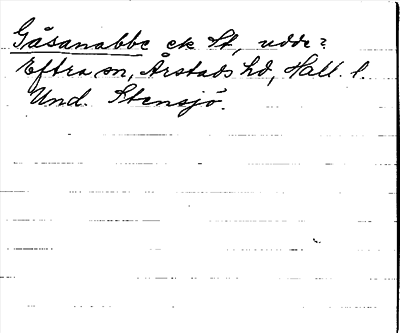 Gåsanabbe ek St, udde?
Eftra sn, Årstads hd, Hall. l.
Und. Stensjö.